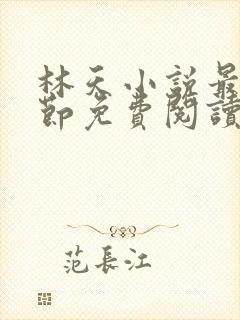 林天小説最
節免費閱讀
范長江